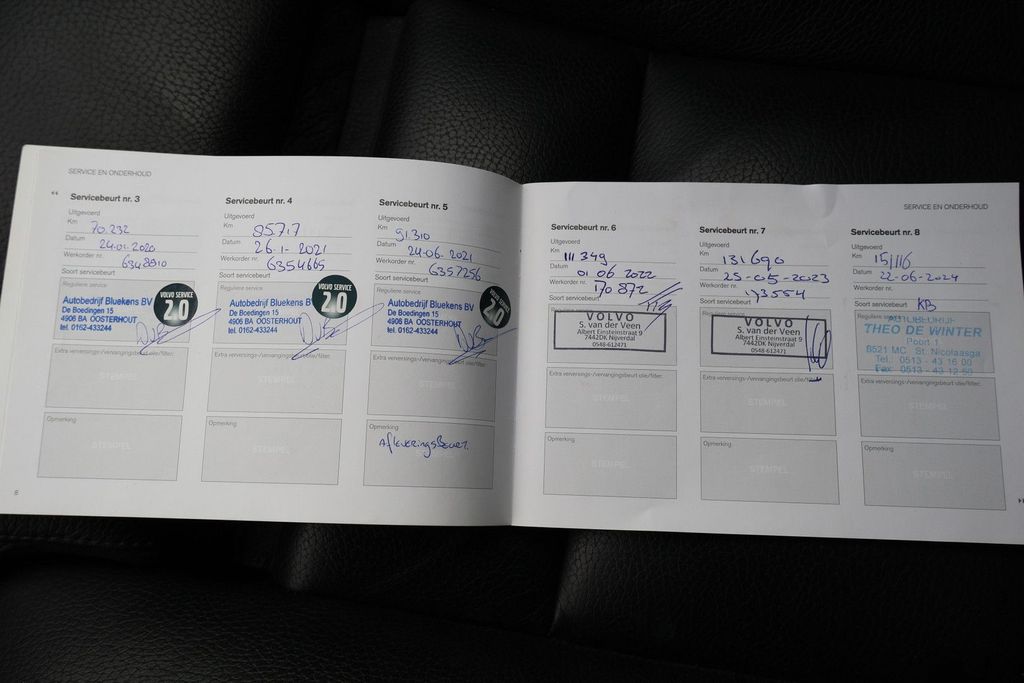 SERVICE EN ONDERHOUD
Servicebeurt nr. 3
Uitgevoerd
Km 70.232
Datum 24.01.2020
Werkorder nr. 6348810
Soort servicebeurt
Reguliere service
Autobedrijf Bluekens BV
De Boedingen 15
4906 BA OOSTERHOUT
tel. 0162-433244
VOLVO SERVICE
2.0
Extra verversings-/vervangingsbeurt olie/filter:
STEMPEL
Opmerking
STEMPEL
6
Servicebeurt nr. 4
Uitgevoerd
Km 85.717
Datum 26-1-2021
Werkorder nr. 6354665
Soort servicebeurt
Reguliere service
Autobedrijf Bluekens BV
De Boedingen 15
4906 BA OOSTERHOUT
tel. 0162-433244
VOLVO SERVICE
2.0
Extra verversings-/vervangingsbeurt olie/filter:
STEMPEL
Opmerking
STEMPEL
Servicebeurt nr. 5
Uitgevoerd
Km 91.310
Datum 24-06-2021
Werkorder nr. 6357256
Soort servicebeurt
Reguliere service
Autobedrijf Bluekens BV
De Boedingen 15
4906 BA OOSTERHOUT
tel. 0162-433244
VOLVO SERVICE
2.0
Extra verversings-/vervangingsbeurt olie/filter:
STEMPEL
Opmerking
AfleveringsBeurt.
SERVICE EN ONDERHOUD
Servicebeurt nr. 6
Uitgevoerd
Km 111 349
Datum 01 06 2022
Werkorder nr. 170872
Soort servicebeurt
VOLVO
S. van der Veen
Albert Einsteinstraat 9
7442DK Nijverdal
0548-612471
Extra verversings-/vervangingsbeurt olie/filter:
STEMPEL
Opmerking
STEMPEL
Servicebeurt nr. 7
Uitgevoerd
Km 131690
Datum 25-05-2023
Werkorder nr. 173554
Soort servicebeurt
VOLVO
S. van der Veen
Albert Einsteinstraat 9
7442DK Nijverdal
0548-612471
Extra verversings-/vervangingsbeurt olie/filter:
STEMPEL
Opmerking
STEMPEL
Servicebeurt nr. 8
Uitgevoerd
Km 151116
Datum 22-06-2024
Werkorder nr.
Soort servicebeurt KB
AUTOBEDRIJF
THEO DE WINTER
Poort 1
8521 MC St. Nicolaasga
Tel.: 0513 - 43 16 00
Fax: 0513 - 43 12 50
Extra verversings-/vervangingsbeurt olie/filter:
STEMPEL
Opmerking
STEMPEL